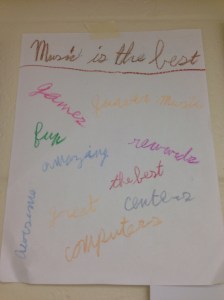 Music is the best
games
forever music
fun
amazing
rewards
the best
awesome
great
centers
computers